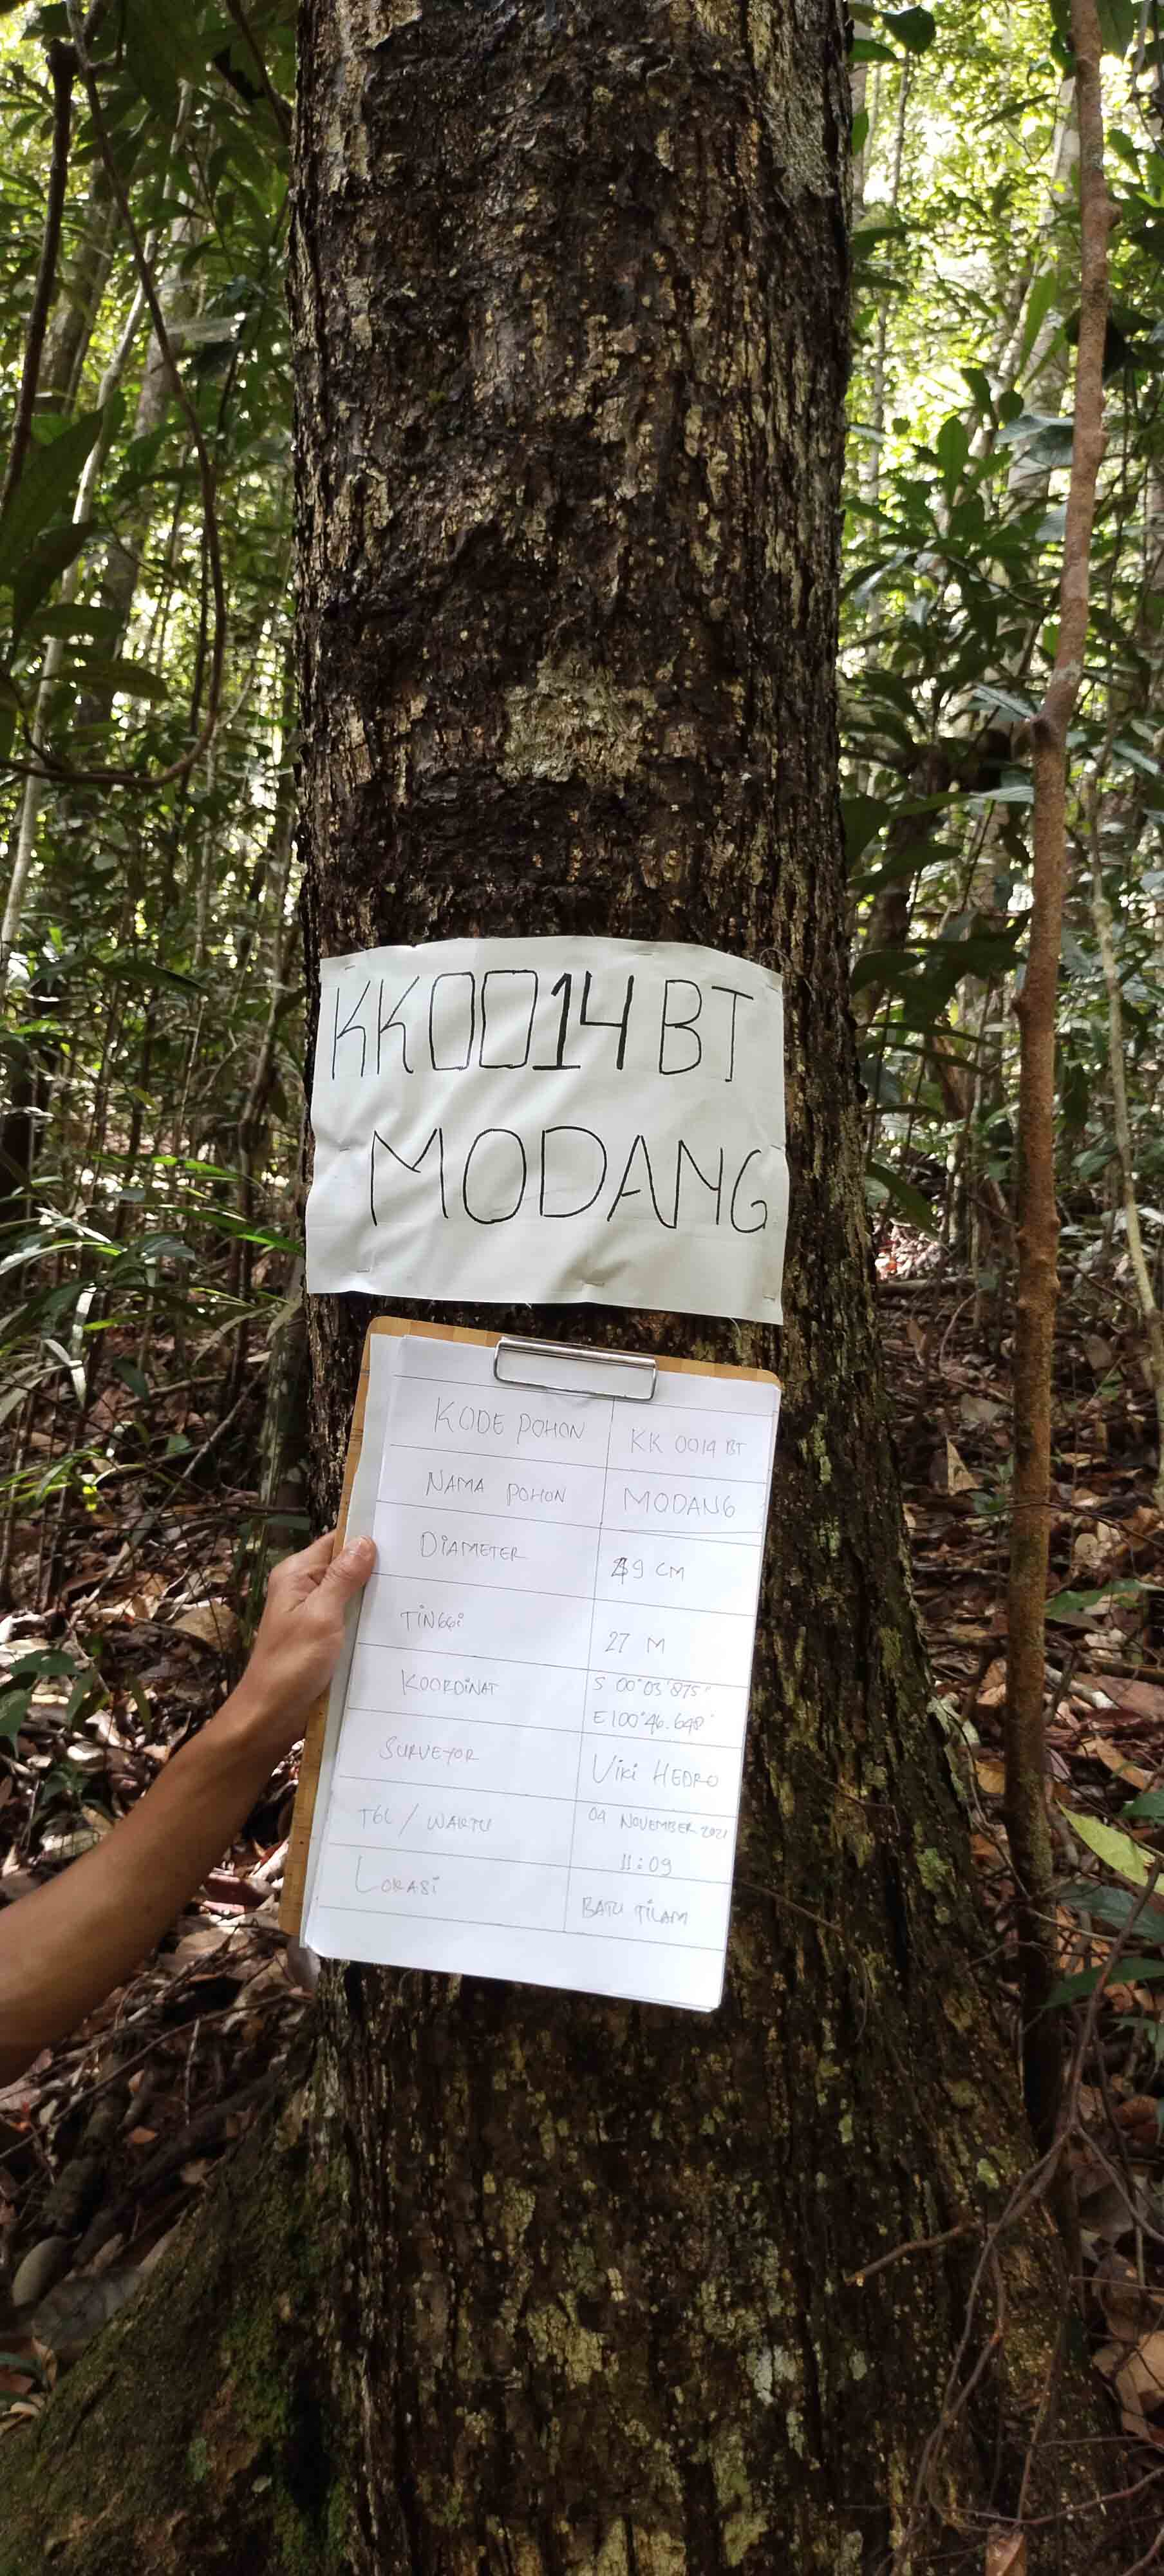 KK0014BT
MODANG
KODE POHON KK 0014 BT
NAMA POHON MODANG
DIAMETER CM
TINGGI 27 M
KOORDINAT S 00°03'875"
E100°46.648'
SURVEYOR Viki HEDRO
TGL / WAKTU 04 NOVEMBER 2021
11:09
LOKASI BATU TILAM